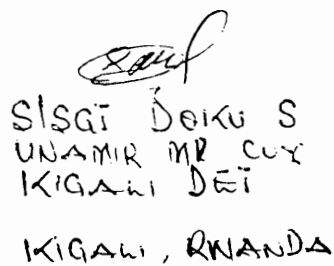 S/SGT DOKU S
UNAMIR MP COY
KIGALI DET
KIGALI, RWANDA